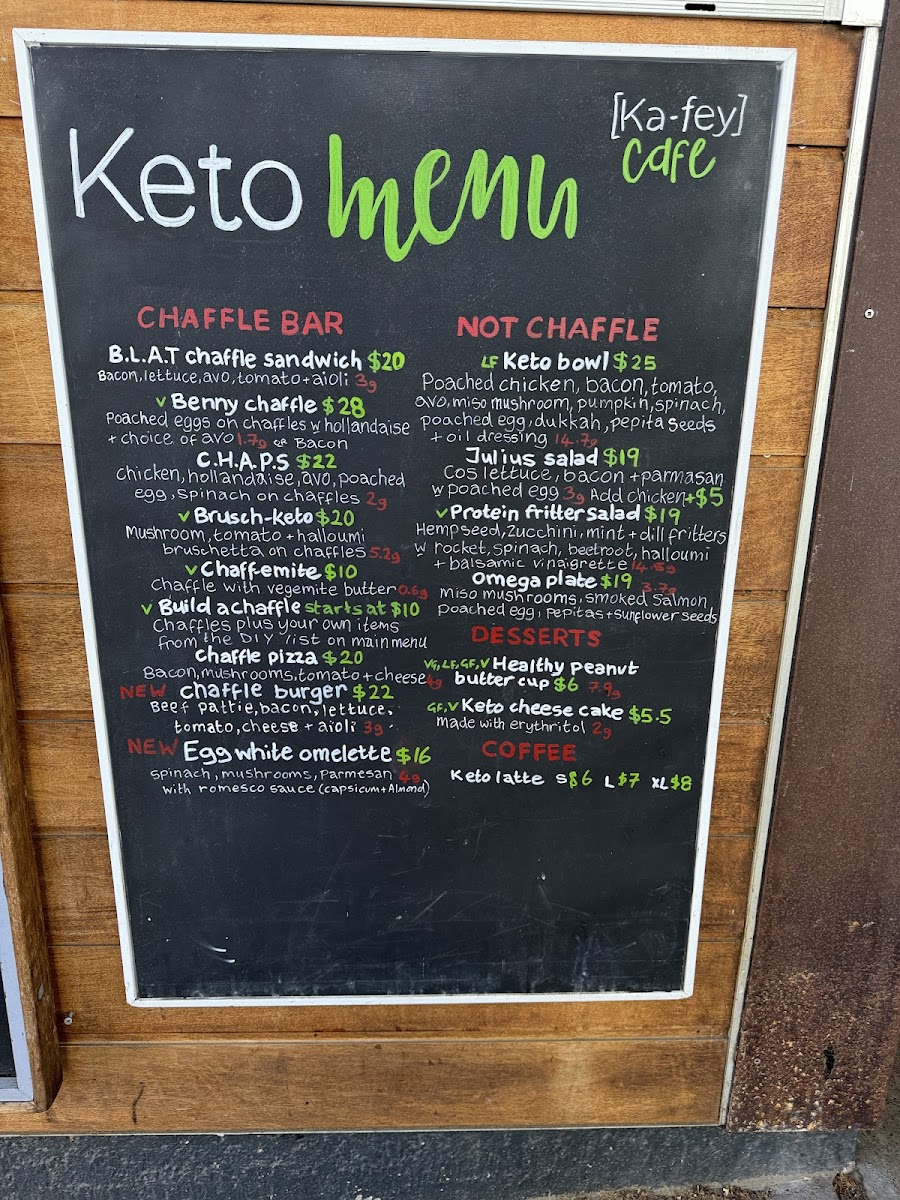 Keto menu
[Ka-fey]
cafe
CHAFFLE BAR
B.L.A.T chaffle sandwich $20
Bacon, lettuce, avo, tomato + aioli 3g
v Benny chaffle $28
Poached eggs on chaffles w hollandaise
+ choice of avo 1.7g or Bacon
C.H.A.P.S $22
chicken, hollandaise, avo, poached
egg, spinach on chaffles 2g
v Brusch-keto $20
Mushroom, tomato + halloumi
bruschetta on chaffles 5.2g
v Chaff-emite $10
Chaffle with vegemite butter 0.6g
v Build a chaffle starts at $10
Chaffles plus your own items
from the DIY list on main menu
Chaffle pizza $20
Bacon, mushrooms, tomato + cheese 4g
NEW chaffle burger $22
Beef pattie, bacon, lettuce,
tomato, cheese + aioli 3g
NEW Egg white omelette $16
spinach, mushrooms, Parmesan 4g
with romesco sauce (capsicum + Almond)
NOT CHAFFLE
LF Keto bowl $25
Poached chicken, bacon, tomato,
avo, miso mushroom, pumpkin, spinach,
poached egg, dukkah, pepita seeds
+ oil dressing 14.7g
Julius salad $19
Cos lettuce, bacon + parmasan
w poached egg 3g Add chicken +$5
v Protein fritter Salad $19
Hempseed, zucchini, mint + dill fritters
w rocket, spinach, beetroot, halloumi
+ balsamic vinaigrette 14.8g
Omega plate $19 3.7g
miso mushrooms, smoked salmon,
poached egg, pepitas + sunflower seeds
DESSERTS
VG, LF, GF, V Healthy peanut
butter cup $6 7.9g
GF, V Keto cheese cake $5.5
made with erythritol 2g
COFFEE
Keto latte S $6 L $7 XL $8